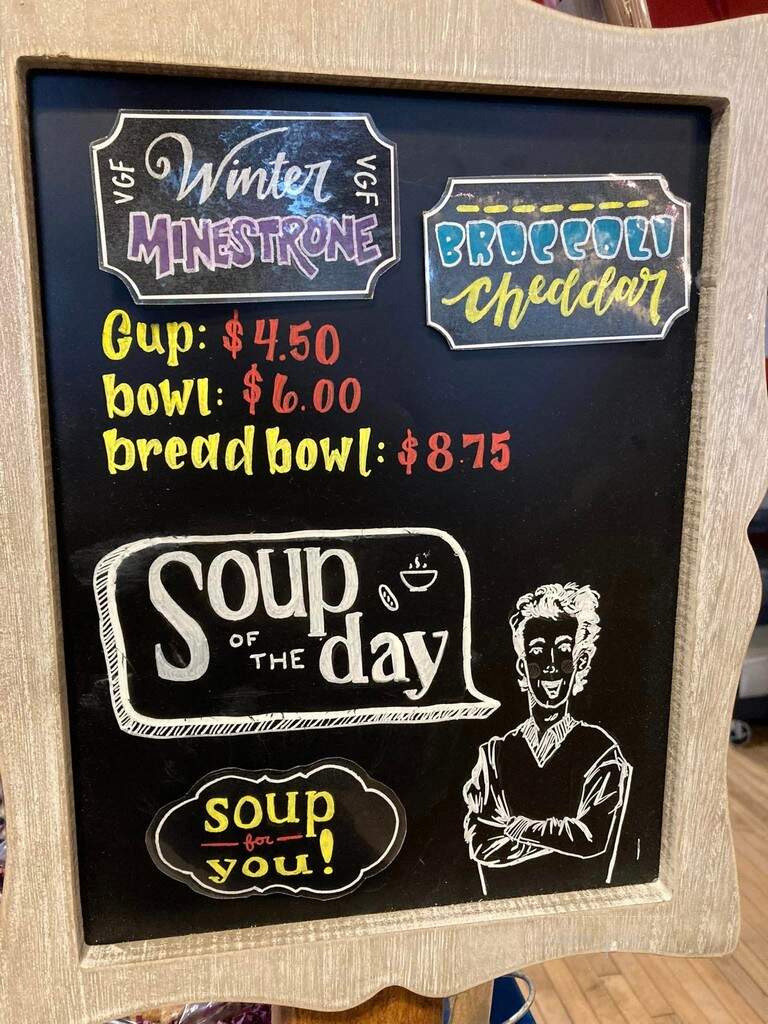 VGF
Winter
VGF
MINESTRONE
BROCCOLI
cheddar
Cup: $4.50
bowl: $6.00
bread bowl: $8.75
Soup
OF THE day
soup
for
you!